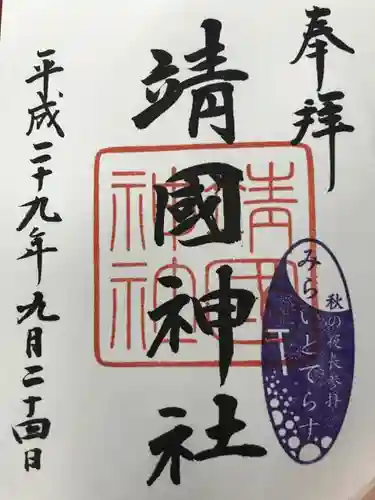 奉拝
靖國神社
平成二十九年九月二十四日
靖國神社
秋の夜長参拝
みらいとてらす